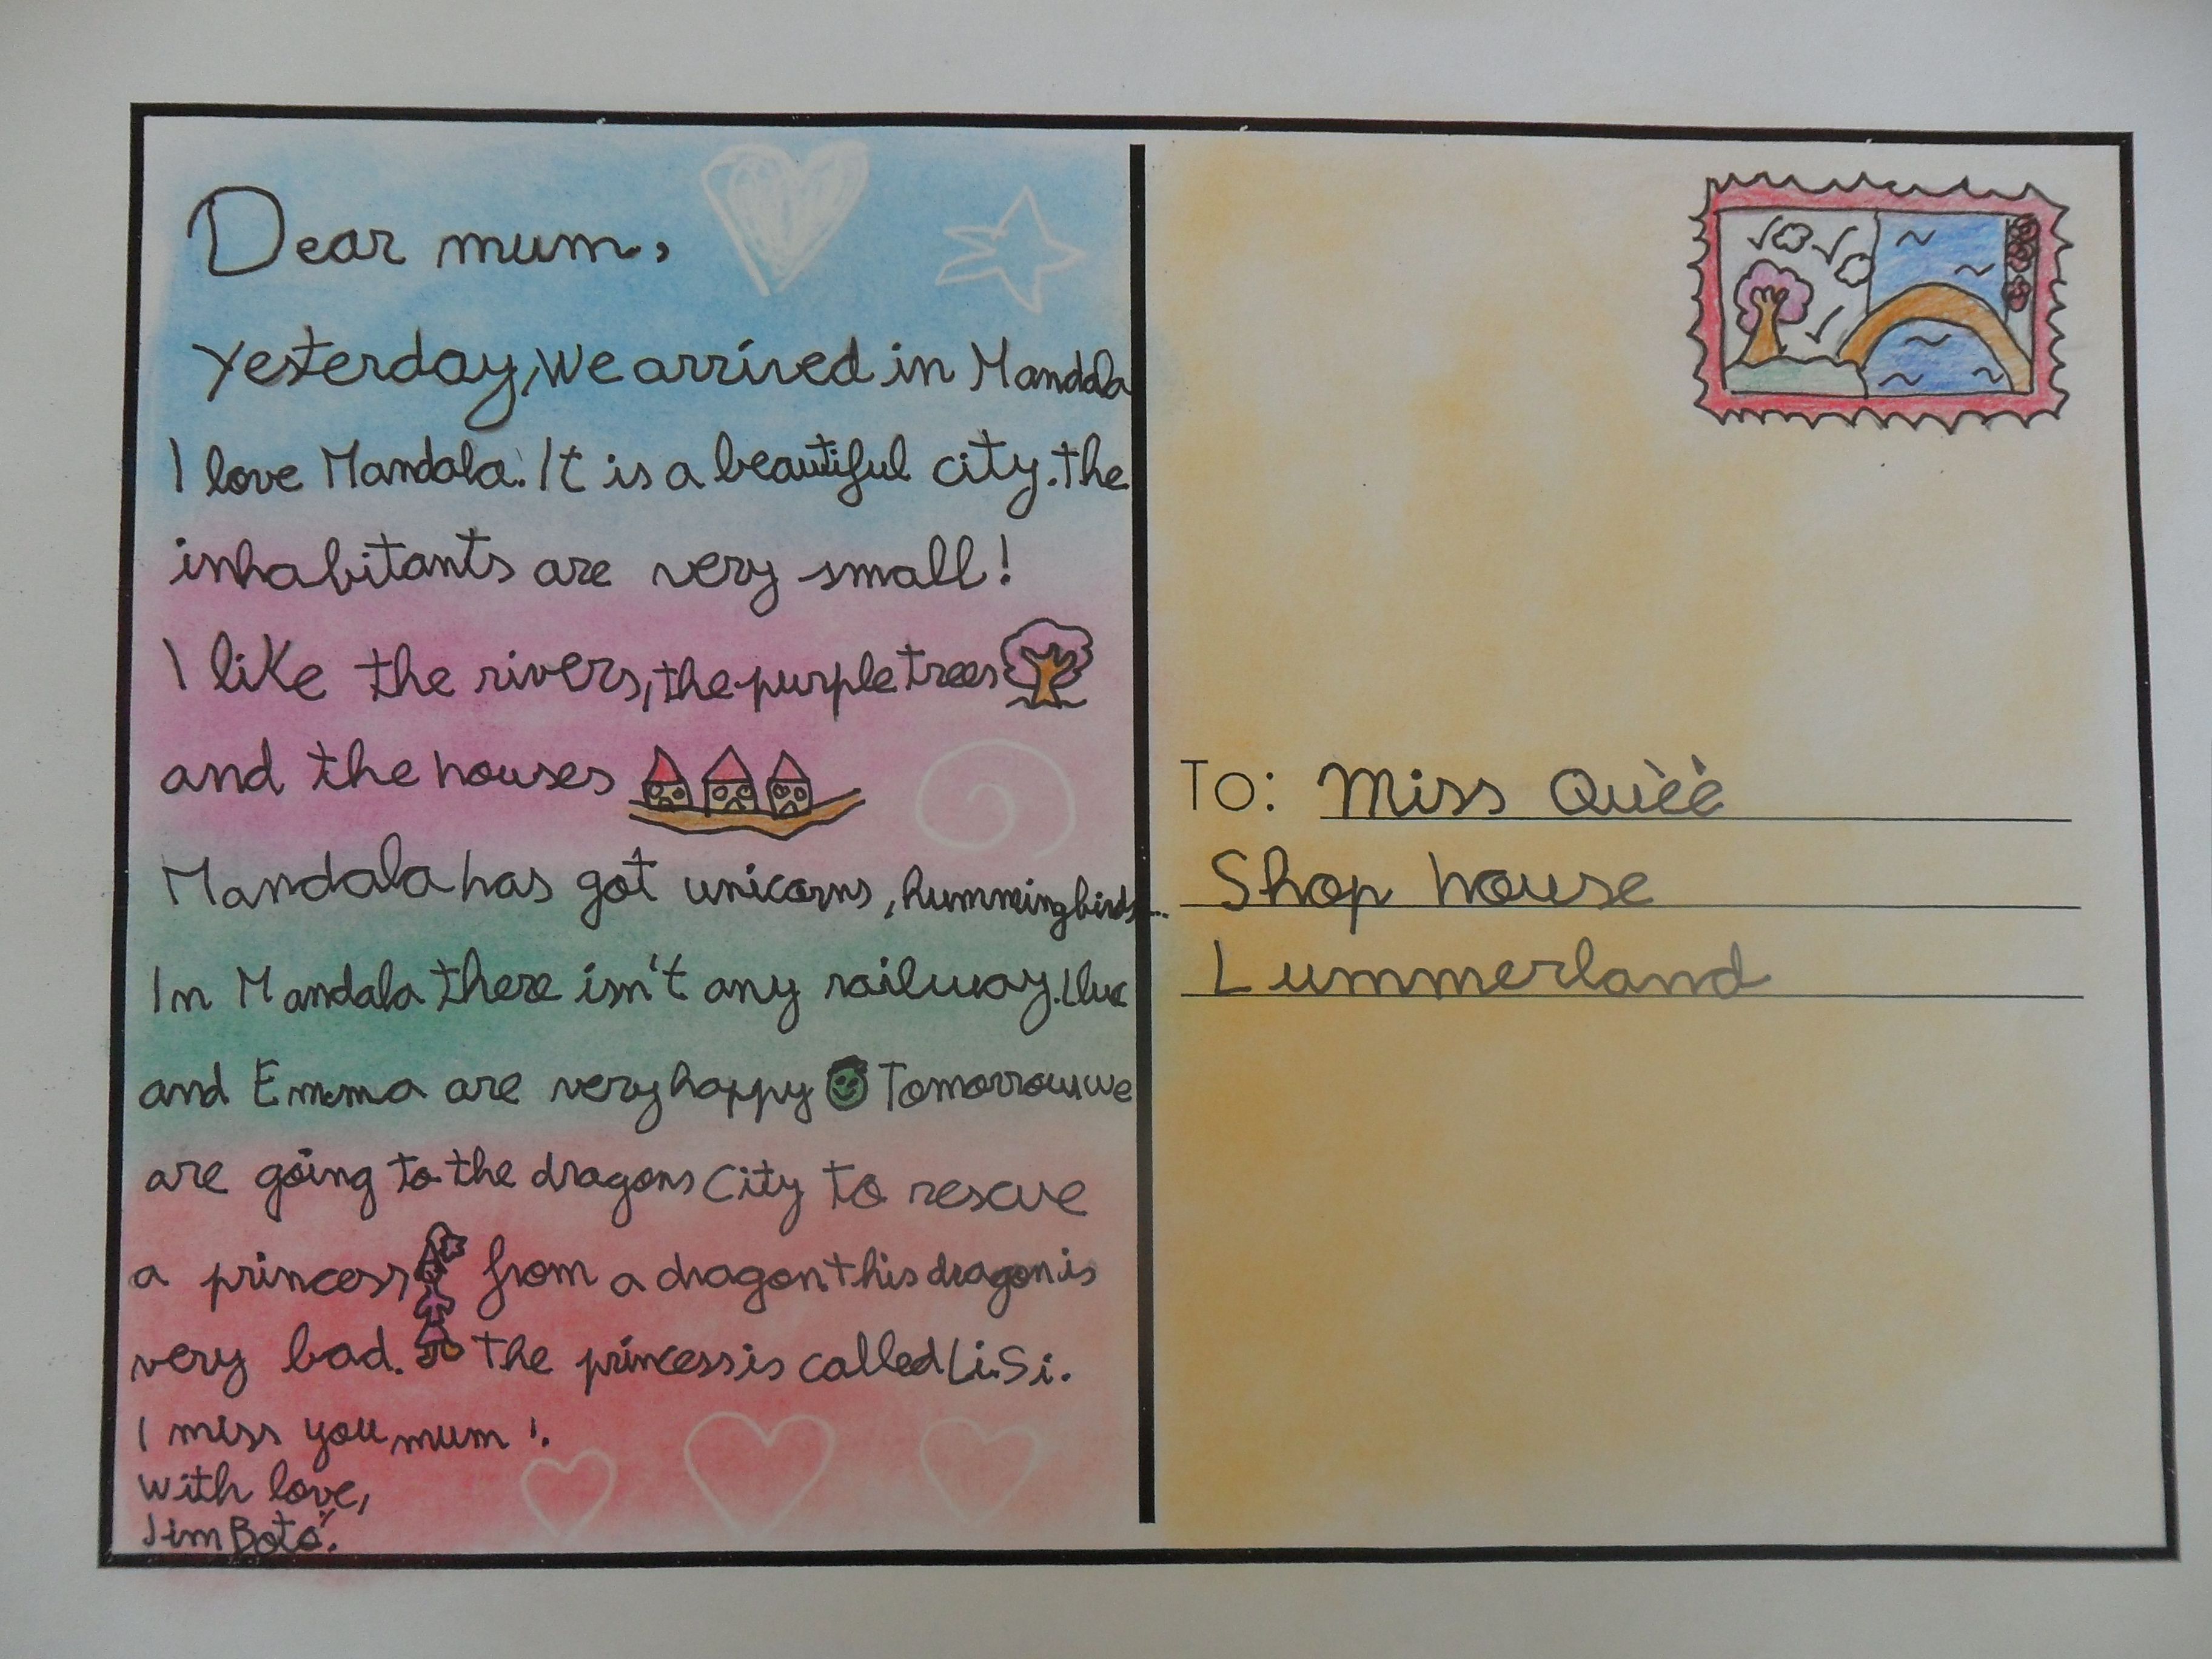 Dear mum,
Yesterday, we arrived in Mandala
I love Mandala! It is a beautiful city. the
inhabitants are very small!
I like the rivers, the purple trees
and the houses
Mandala has got unicorns, hummingbirds...
In Mandala there isn't any railway. Lluc
and Emma are very happy Tomorrow we
are going to the dragons City to rescue
a princess from a dragon this dragon is
very bad. the princess is called Li.Si.
I miss you mum!
With love,
Jim Botó.
To: Miss Quèè
Shop house
Lummerland